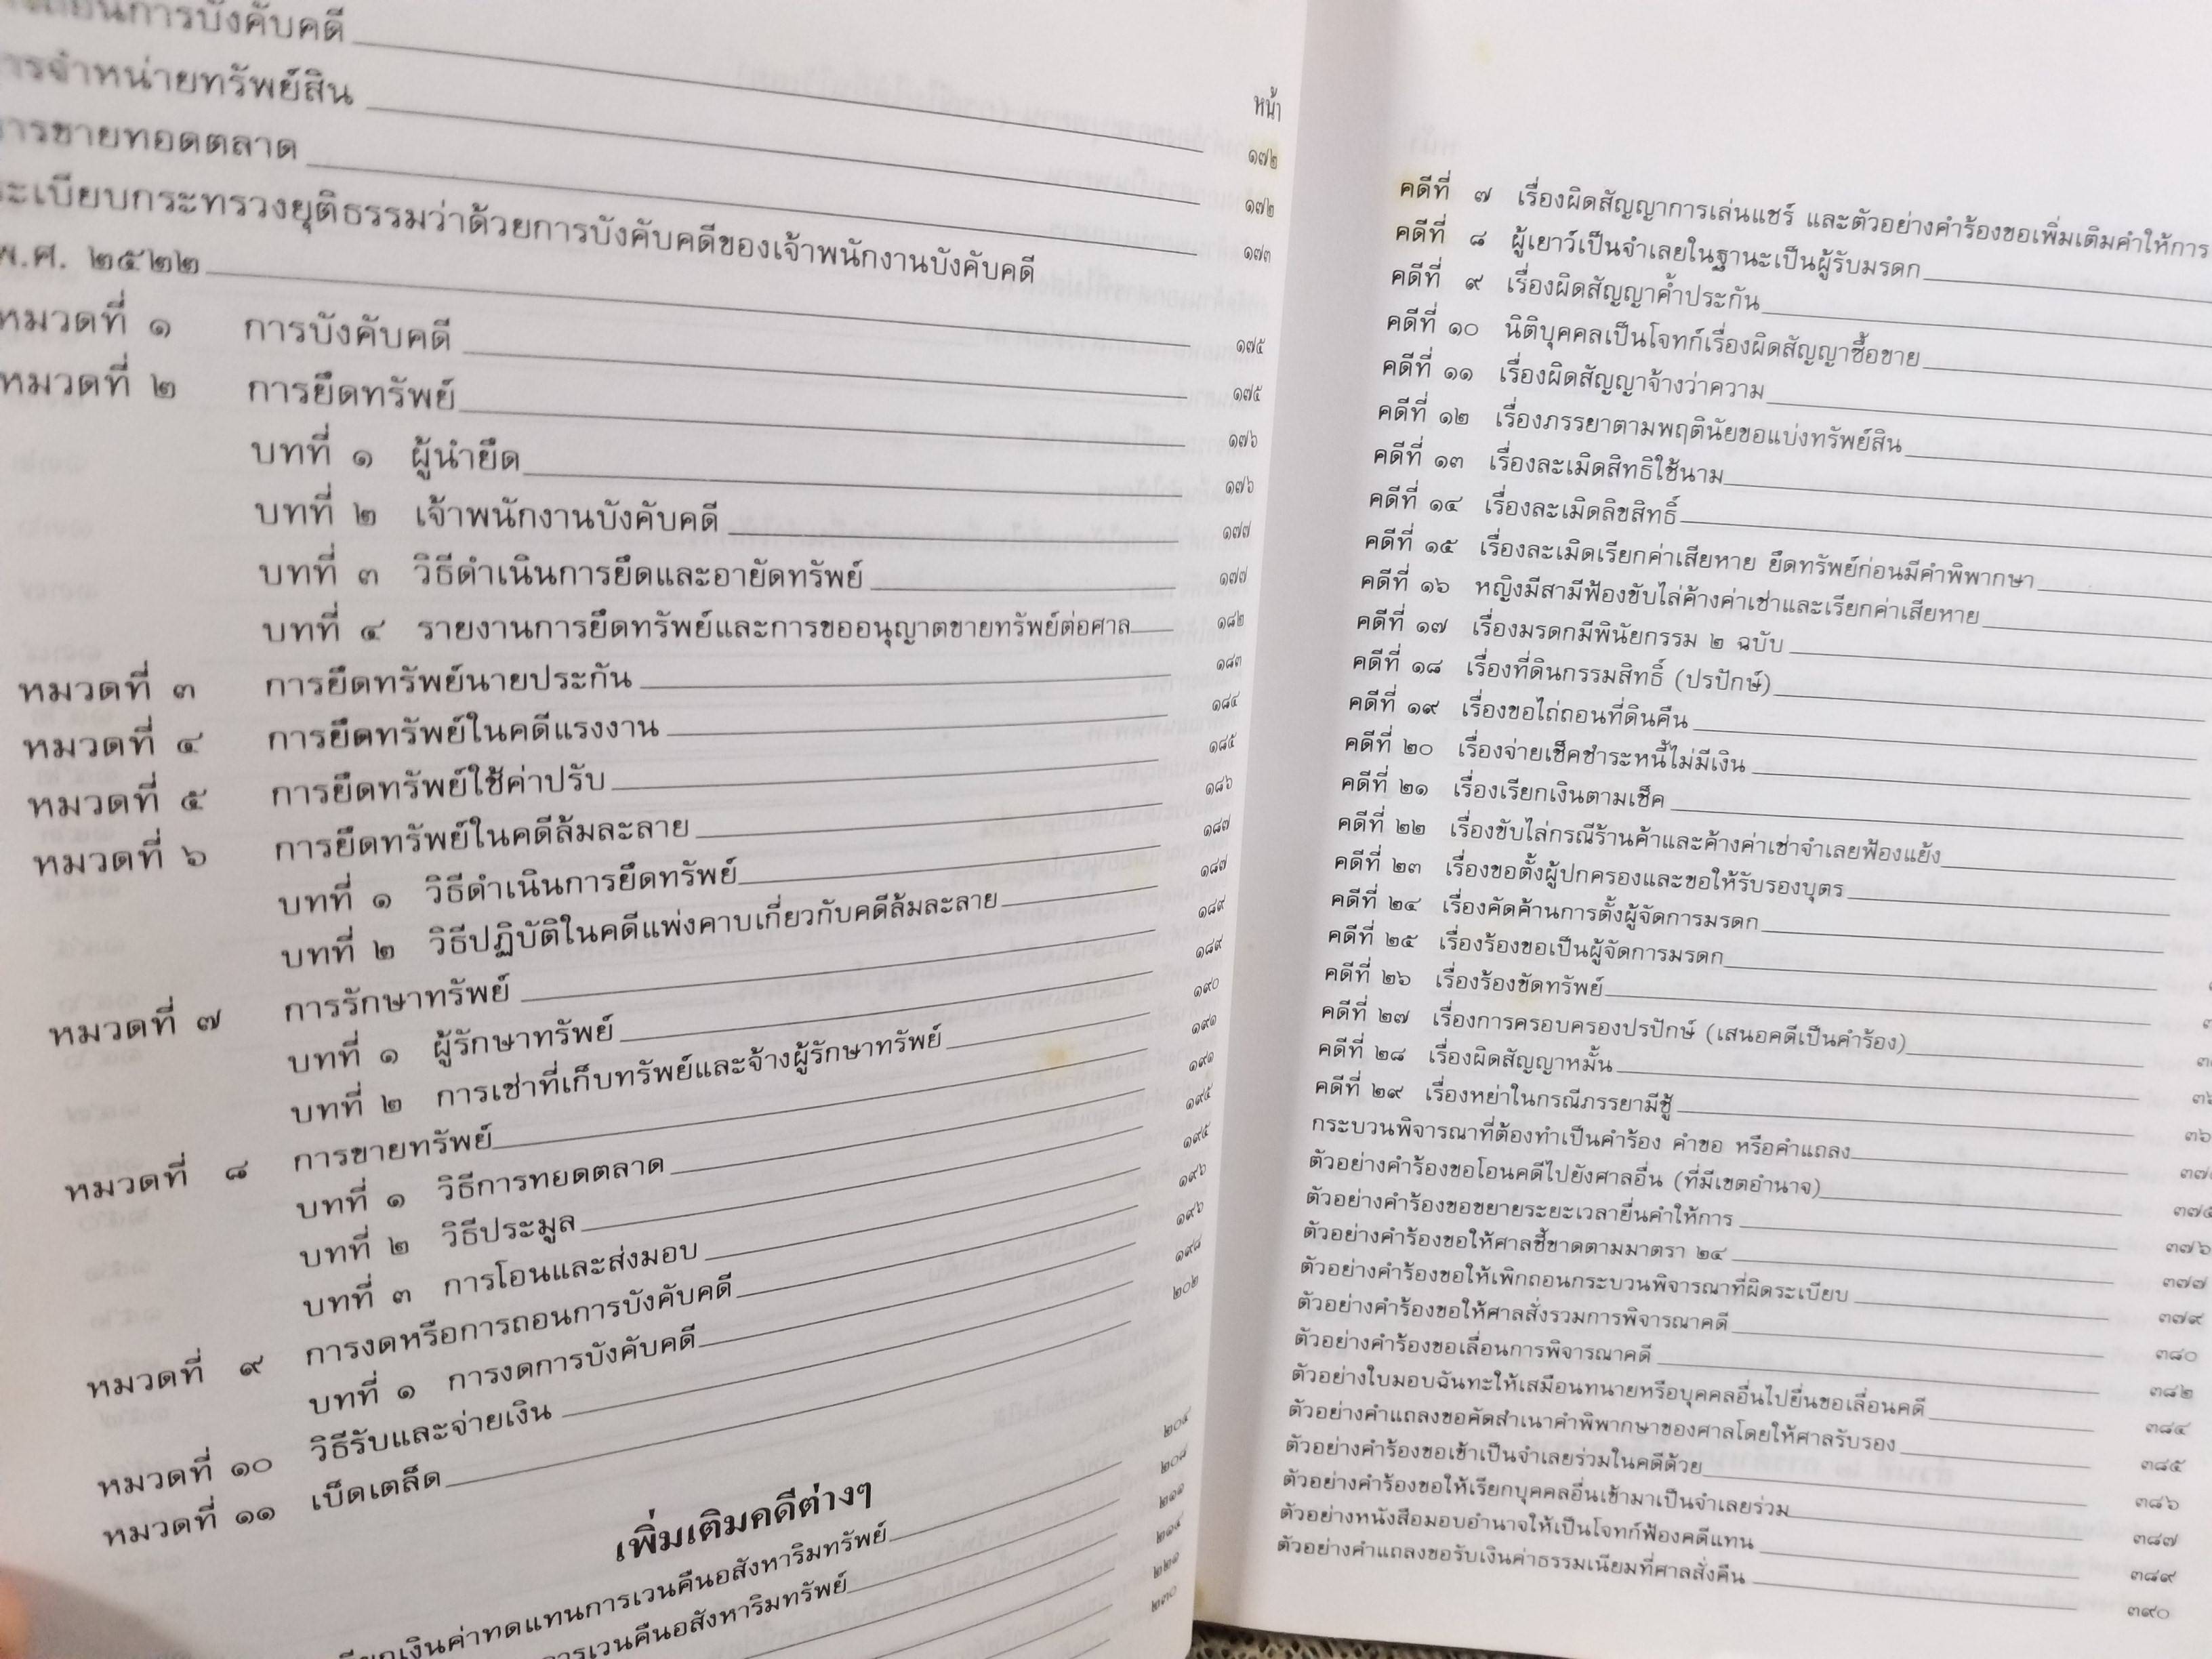 การบังคับคดี
การจำหน่ายทรัพย์สิน
การขายทอดตลาด
ระเบียบกระทรวงยุติธรรมว่าด้วยการบังคับคดีของเจ้าพนักงานบังคับคดี
พ.ศ. ๒๕๒๒
หมวดที่ ๑ การบังคับคดี
หมวดที่ ๒ การยึดทรัพย์
บทที่ ๑ ผู้นำยึด
บทที่ ๒ เจ้าพนักงานบังคับคดี
บทที่ ๓ วิธีดำเนินการยึดและอายัดทรัพย์
บทที่ ๔ รายงานการยึดทรัพย์และการขออนุญาตขายทรัพย์ต่อศาล
หมวดที่ ๓ การยึดทรัพย์นายประกัน
หมวดที่ ๔ การยึดทรัพย์ในคดีแรงงาน
หมวดที่ ๕ การยึดทรัพย์ใช้ค่าปรับ
หมวดที่ ๖ การยึดทรัพย์ในคดีล้มละลาย
บทที่ ๑ วิธีดำเนินการยึดทรัพย์
บทที่ ๒ วิธีปฏิบัติในคดีแพ่งคาบเกี่ยวกับคดีล้มละลาย
หมวดที่ ๗ การรักษาทรัพย์
บทที่ ๑ ผู้รักษาทรัพย์
บทที่ ๒ การเช่าที่เก็บทรัพย์และจ้างผู้รักษาทรัพย์
หมวดที่ ๘ การขายทรัพย์
บทที่ ๑ วิธีการทยดตลาด
บทที่ ๒ วิธีประมูล
บทที่ ๓ การโอนและส่งมอบ
หมวดที่ ๙ การงดหรือการถอนการบังคับคดี
บทที่ ๑ การงดการบังคับคดี
หมวดที่ ๑๐ วิธีรับและจ่ายเงิน
หมวดที่ ๑๑ เบ็ดเตล็ด
เพิ่มเติมคดีต่างๆ
เงินค่าทดแทนการเวนคืนอสังหาริมทรัพย์
การเวนคืนอสังหาริมทรัพย์
หน้า
๑๗๒
๑๗๒
๑๗๓
๑๗๕
๑๗๕
๑๗๖
๑๗๖
๑๗๗
๑๗๗
๑๘๒
๑๘๓
๑๘๔
๑๘๕
๑๘๖
๑๘๗
๑๘๗
๑๘๙
๑๘๙
๑๙๐
๑๙๑
๑๙๑
๑๙๕
๑๙๕
๑๙๖
๑๙๖
๑๙๘
๒๐๒
๒๐๔
๒๐๘
๒๑๑
๒๑๔
๒๒๑
๒๓๐
คดีที่ ๗ เรื่องผิดสัญญาการเล่นแชร์ และตัวอย่างคำร้องขอเพิ่มเติมคำให้การ
คดีที่ ๘ ผู้เยาว์เป็นจำเลยในฐานะเป็นผู้รับมรดก
คดีที่ ๙ เรื่องผิดสัญญาค้ำประกัน
คดีที่ ๑๐ นิติบุคคลเป็นโจทก์เรื่องผิดสัญญาซื้อขาย
คดีที่ ๑๑ เรื่องผิดสัญญาจ้างว่าความ
คดีที่ ๑๒ เรื่องภรรยาตามพฤตินัยขอแบ่งทรัพย์สิน
คดีที่ ๑๓ เรื่องละเมิดสิทธิใช้นาม
คดีที่ ๑๔ เรื่องละเมิดลิขสิทธิ์
คดีที่ ๑๕ เรื่องละเมิดเรียกค่าเสียหาย ยึดทรัพย์ก่อนมีคำพิพากษา
คดีที่ ๑๖ หญิงมีสามีฟ้องขับไล่ค้างค่าเช่าและเรียกค่าเสียหาย
คดีที่ ๑๗ เรื่องมรดกมีพินัยกรรม ๒ ฉบับ
คดีที่ ๑๘ เรื่องที่ดินกรรมสิทธิ์ (ปรปักษ์)
คดีที่ ๑๙ เรื่องขอไถ่ถอนที่ดินคืน
คดีที่ ๒๐ เรื่องจ่ายเช็คชำระหนี้ไม่มีเงิน
คดีที่ ๒๑ เรื่องเรียกเงินตามเช็ค
คดีที่ ๒๒ เรื่องขับไล่กรณีร้านค้าและค้างค่าเช่าจำเลยฟ้องแย้ง
คดีที่ ๒๓ เรื่องขอตั้งผู้ปกครองและขอให้รับรองบุตร
คดีที่ ๒๔ เรื่องคัดค้านการตั้งผู้จัดการมรดก
คดีที่ ๒๕ เรื่องร้องขอเป็นผู้จัดการมรดก
คดีที่ ๒๖ เรื่องร้องขัดทรัพย์
คดีที่ ๒๗ เรื่องการครอบครองปรปักษ์ (เสนอคดีเป็นคำร้อง)
คดีที่ ๒๘ เรื่องผิดสัญญาหมั้น
คดีที่ ๒๙ เรื่องหย่าในกรณีภรรยามีชู้
กระบวนพิจารณาที่ต้องทำเป็นคำร้อง คำขอ หรือคำแถลง
ตัวอย่างคำร้องขอโอนคดีไปยังศาลอื่น (ที่มีเขตอำนาจ)
ตัวอย่างคำร้องขอขยายระยะเวลายื่นคำให้การ ๓๗๕
ตัวอย่างคำร้องขอให้ศาลชี้ขาดตามมาตรา ๒๔ ๓๗๖
ตัวอย่างคำร้องขอให้เพิกถอนกระบวนพิจารณาที่ผิดระเบียบ ๓๗๗
ตัวอย่างคำร้องขอให้ศาลสั่งรวมการพิจารณาคดี ๓๗๙
ตัวอย่างคำร้องขอเลื่อนการพิจารณาคดี ๓๘๐
ตัวอย่างใบมอบฉันทะให้เสมือนทนายหรือบุคคลอื่นไปยื่นขอเลื่อนคดี ๓๘๒
ตัวอย่างคำแถลงขอคัดสำเนาคำพิพากษาของศาลโดยให้ศาลรับรอง ๓๘๔
ตัวอย่างคำร้องขอเข้าเป็นจำเลยร่วมในคดีด้วย ๓๘๕
ตัวอย่างคำร้องขอให้เรียกบุคคลอื่นเข้ามาเป็นจำเลยร่วม ๓๘๖
ตัวอย่างหนังสือมอบอำนาจให้เป็นโจทก์ฟ้องคดีแทน ๓๘๗
ตัวอย่างคำแถลงขอรับเงินค่าธรรมเนียมที่ศาลสั่งคืน ๓๘๙
๓๙๐